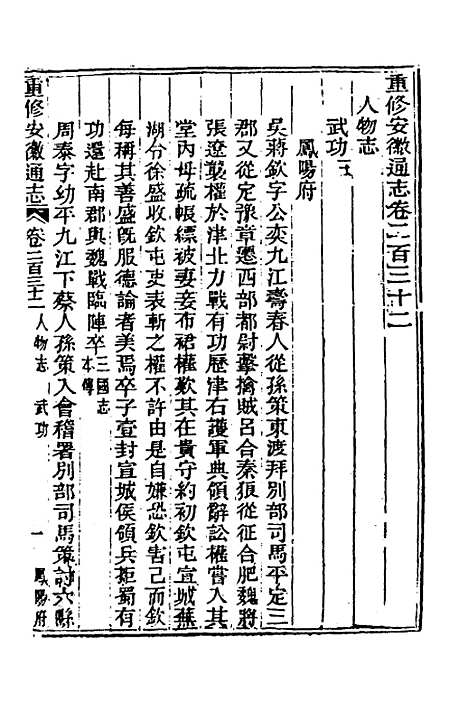 重修安徽通志卷二百三十二
人物志
武功五
鳳陽府
吳蔣欽字公奕九江壽春人從孫策東渡拜別部司馬平定三
郡又從定豫章遷西部都尉擊擒賊呂合秦狼從征合肥魏將
張遼襲權於津北力戰有功歷津右護軍典領辭訟權嘗入其
堂內母疏帳縹被妻妾布裙權歎其在貴守約初欽屯宣城蕪
湖令徐盛收欽屯吏表斬之權不許由是自嫌恐欽害己而欽
每稱其善盛旣服德論者美焉卒子壹封宣城侯領兵拒蜀有
功還赴南郡與魏戰臨陣卒三國志本傳
周泰字幼平九江下蔡人孫策入會稽署別部司馬策討六縣
重修安徽通志 卷二百三十二 人物志 武功 一 鳳陽府